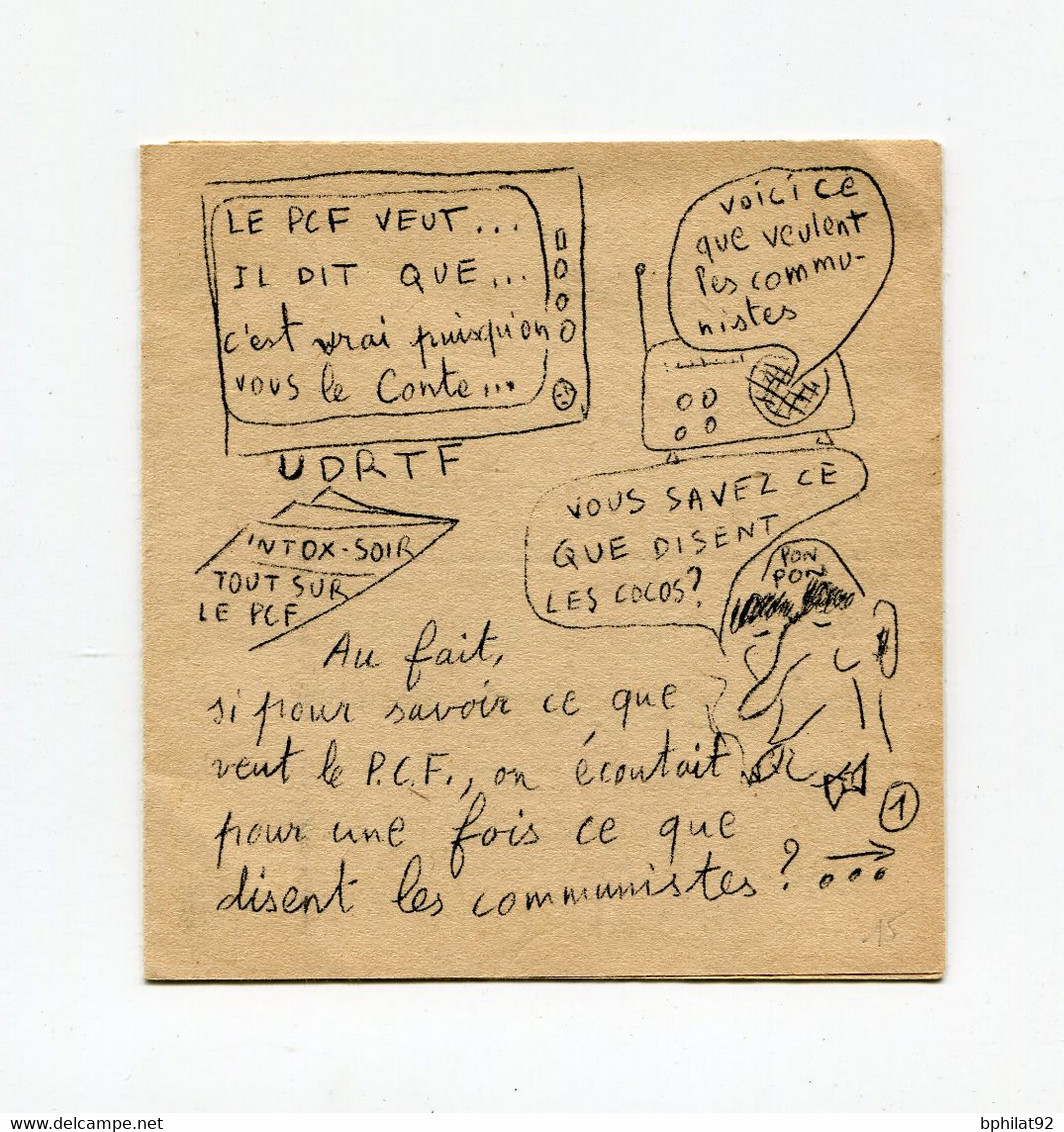 LE PCF VEUT...
IL DIT QUE...
c'est vrai puisqu'on
vous le Conte...
UDRTF
voici ce
que veulent
les commu-
nistes
INTOX-SOIR
TOUT SUR
LE PCF
VOUS SAVEZ CE
QUE DISENT
LES COCOS?
PON
PON
Au fait,
si pour savoir ce que
veut le P.C.F., on écoutait
pour une fois ce que
disent les communistes?
1
15
delcampe.net
bphilat92